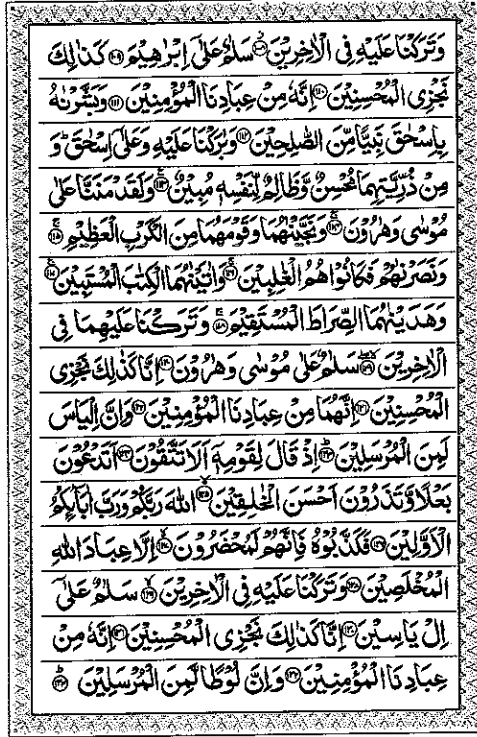 وَتَرَكْنَا عَلَيْهِ فِى الْاٰخِرِيْنَ ﴿۱۰۸﴾ سَلٰمٌ عَلٰٓى اِبْرٰهِيْمَ ﴿۱۰۹﴾ كَذٰلِكَ
نَجْزِى الْمُحْسِنِيْنَ ﴿۱۱۰﴾ اِنَّهٗ مِنْ عِبَادِنَا الْمُؤْمِنِيْنَ ﴿۱۱۱﴾ وَبَشَّرْنٰهُ
بِاِسْحٰقَ نَبِيًّا مِّنَ الصّٰلِحِيْنَ ﴿۱۱۲﴾ وَبٰرَكْنَا عَلَيْهِ وَعَلٰٓى اِسْحٰقَ ؕ وَ
مِنْ ذُرِّيَّتِهِمَا مُحْسِنٌ وَّظَالِمٌ لِّنَفْسِهٖ مُبِيْنٌ ﴿۱۱۳﴾ وَلَقَدْ مَنَنَّا عَلٰى
مُوْسٰى وَهٰرُوْنَ ﴿۱۱۴﴾ وَنَجَّيْنٰهُمَا وَقَوْمَهُمَا مِنَ الْكَرْبِ الْعَظِيْمِ ﴿۱۱۵﴾
وَنَصَرْنٰهُمْ فَكَانُوْا هُمُ الْغٰلِبِيْنَ ﴿۱۱۶﴾ وَاٰتَيْنٰهُمَا الْكِتٰبَ الْمُسْتَبِيْنَ ﴿۱۱۷﴾
وَهَدَيْنٰهُمَا الصِّرَاطَ الْمُسْتَقِيْمَ ﴿۱۱۸﴾ وَتَرَكْنَا عَلَيْهِمَا فِى
الْاٰخِرِيْنَ ﴿۱۱۹﴾ سَلٰمٌ عَلٰى مُوْسٰى وَهٰرُوْنَ ﴿۱۲۰﴾ اِنَّا كَذٰلِكَ نَجْزِى
الْمُحْسِنِيْنَ ﴿۱۲۱﴾ اِنَّهُمَا مِنْ عِبَادِنَا الْمُؤْمِنِيْنَ ﴿۱۲۲﴾ وَاِنَّ اِلْيَاسَ
لَمِنَ الْمُرْسَلِيْنَ ﴿۱۲۳﴾ اِذْ قَالَ لِقَوْمِهٖٓ اَلَا تَتَّقُوْنَ ﴿۱۲۴﴾ اَتَدْعُوْنَ
بَعْلًا وَّتَذَرُوْنَ اَحْسَنَ الْخٰلِقِيْنَ ﴿۱۲۵﴾ اللّٰهَ رَبَّكُمْ وَرَبَّ اٰبَآئِكُمُ
الْاَوَّلِيْنَ ﴿۱۲۶﴾ فَكَذَّبُوْهُ فَاِنَّهُمْ لَمُحْضَرُوْنَ ﴿۱۲۷﴾ اِلَّا عِبَادَ اللّٰهِ
الْمُخْلَصِيْنَ ﴿۱۲۸﴾ وَتَرَكْنَا عَلَيْهِ فِى الْاٰخِرِيْنَ ﴿۱۲۹﴾ سَلٰمٌ عَلٰٓى
اِلْ يَاسِيْنَ ﴿۱۳۰﴾ اِنَّا كَذٰلِكَ نَجْزِى الْمُحْسِنِيْنَ ﴿۱۳۱﴾ اِنَّهٗ مِنْ
عِبَادِنَا الْمُؤْمِنِيْنَ ﴿۱۳۲﴾ وَاِنَّ لُوْطًا لَّمِنَ الْمُرْسَلِيْنَ ﴿۱۳۳﴾